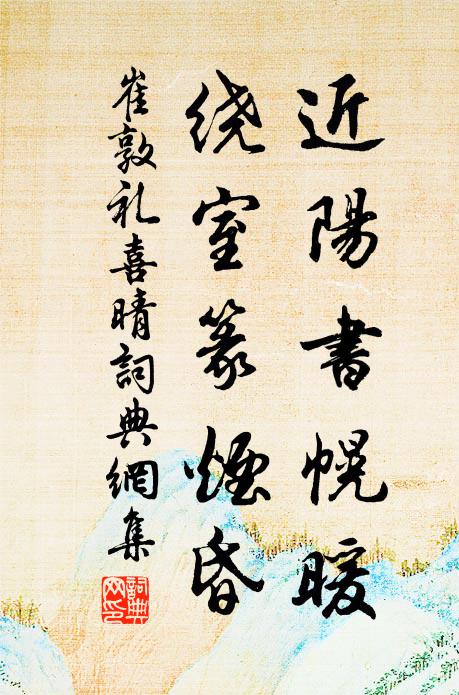 近陽書幌暖
绕室篆煙昏
崔敦礼喜晴詞典網集
詞典